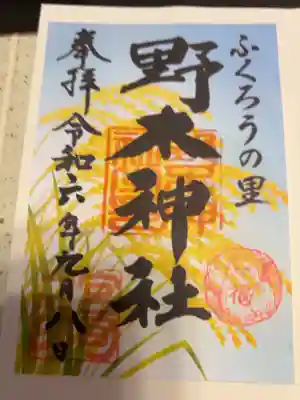 ふくろうの里
野木神社
奉拝 令和六年九月八日